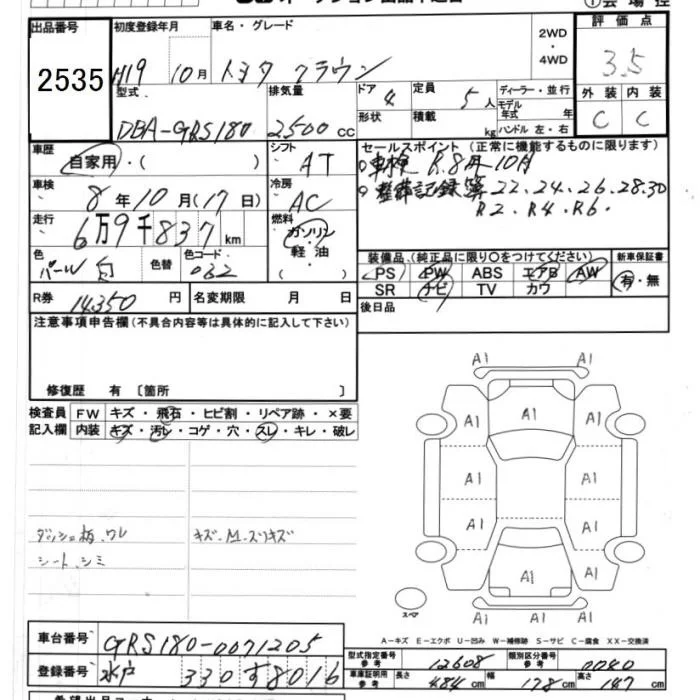 出品番号 初度登録年月 車名・グレード 2WD・4WD 評価点
2535 H19 10月 トヨタ クラウン 3.5
型式 排気量 ドア 4 定員 5人 ディーラー・並行 外装 内装
DBA-GRS180 2500cc 形状 積載 kg モデル年式 年 ハンドル 左・右 C C
車歴 シフト セールスポイント(正常に機能するものに限ります)
自家用・( ) AT 車検 R.8年10月
車検 冷房 整備記録簿 22.24.26.28.30
8年10月(17日) AC R2.R4.R6.
走行 燃料
6万9千837km ガソリン・軽油
色 色替 色コード 装備品(純正品に限り○をつけてください) 新車保証書
パール白 062 PS PW ABS エアB AW 有・無
SR ナビ TV カワ
R券 14,350円 名変期限 月 日 後日品
注意事項申告欄(不具合内容等は具体的に記入して下さい)
修復歴 有 〔箇所 〕
検査員 FW キズ・飛石・ヒビ割・リペア跡・×要
記入欄 内装 キズ・汚レ・コゲ・穴・スレ・キレ・破レ
A1 A1
A1
A1 A1
A1 A1
A1 A1
A1 A1
A1
A1 A1
ダッシュ板.ワレ キズ.M.スリキズ
シート.シミ
スペア
A-キズ E-エクボ U-凹み W-補修跡 S-サビ C-腐食 XX-交換済
車台番号 GRS180-0071205
登録番号 水戸 330 す8016
型式指定番号 参考 12608 類別区分番号 参考 0040
車庫証明用 参考 長さ 484cm 幅 178cm 高さ 147cm